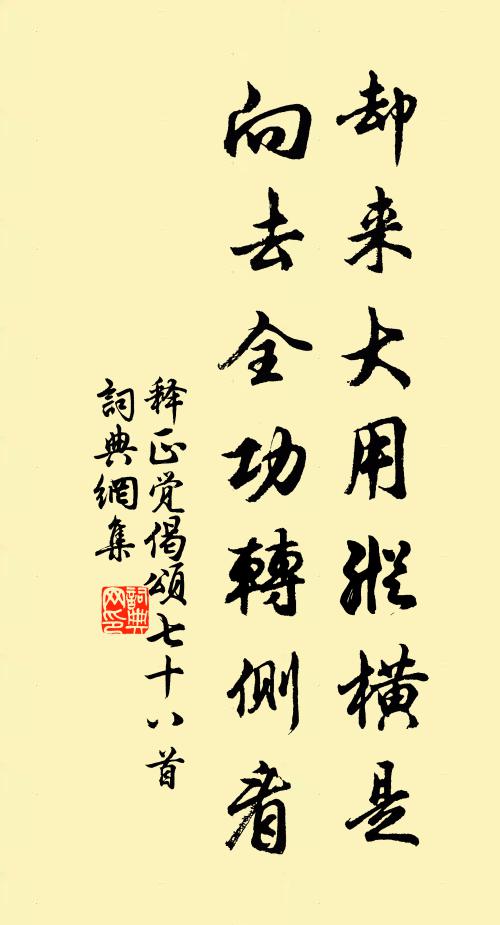 却来大用縱橫是
向去全功轉側看
释正觉偈頌七十八首
詞典網集
詞典网印